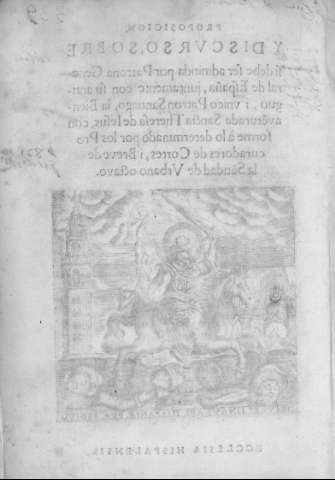 PROPOSICION,
Y DISCVRSO, SOBRE
si debe ser admitida por Patrona Gene-
ral de España, juntamente con su anti-
guo, i vnico Patron Santiago, la Bien-
aventurada Sancta Theresa de Iesus, con
forme à lo determinado por los Pro
curadores de Cortes, i Breve de
la Sanctidad de Vrbano octavo.
HISPANIAE
ECCLESIA HISPALENSIS